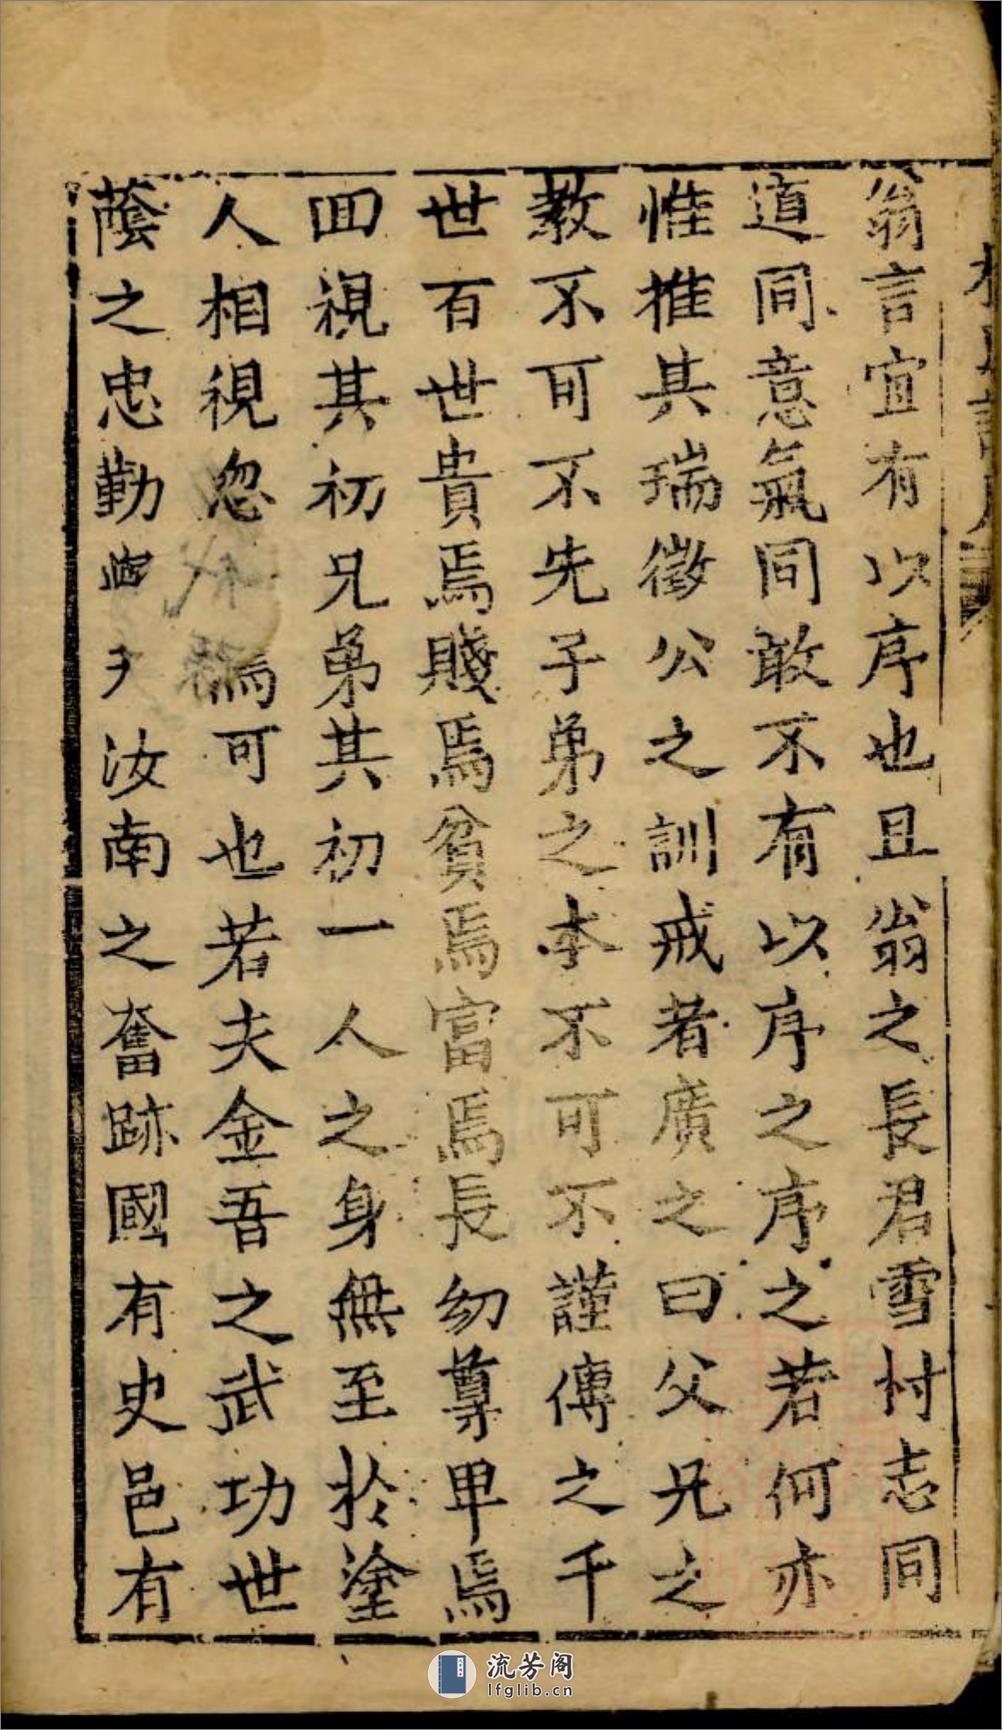 翁言宜有以序也且翁之長君雪村志同
道同意氣同敢不有以序之序之若何亦
惟推其瑞徵公之訓戒者廣之曰父兄之
教不可不先子弟之本不可不謹傳之千
世百世貴焉賤焉貧焉富焉長幼尊卑焉
回視其初兄弟其初一人之身無至於塗
人相視忽焉可也若夫金吾之武功世
蔭之忠勤汝南之奮跡國有史邑有
流芳阁
lfglib.cn